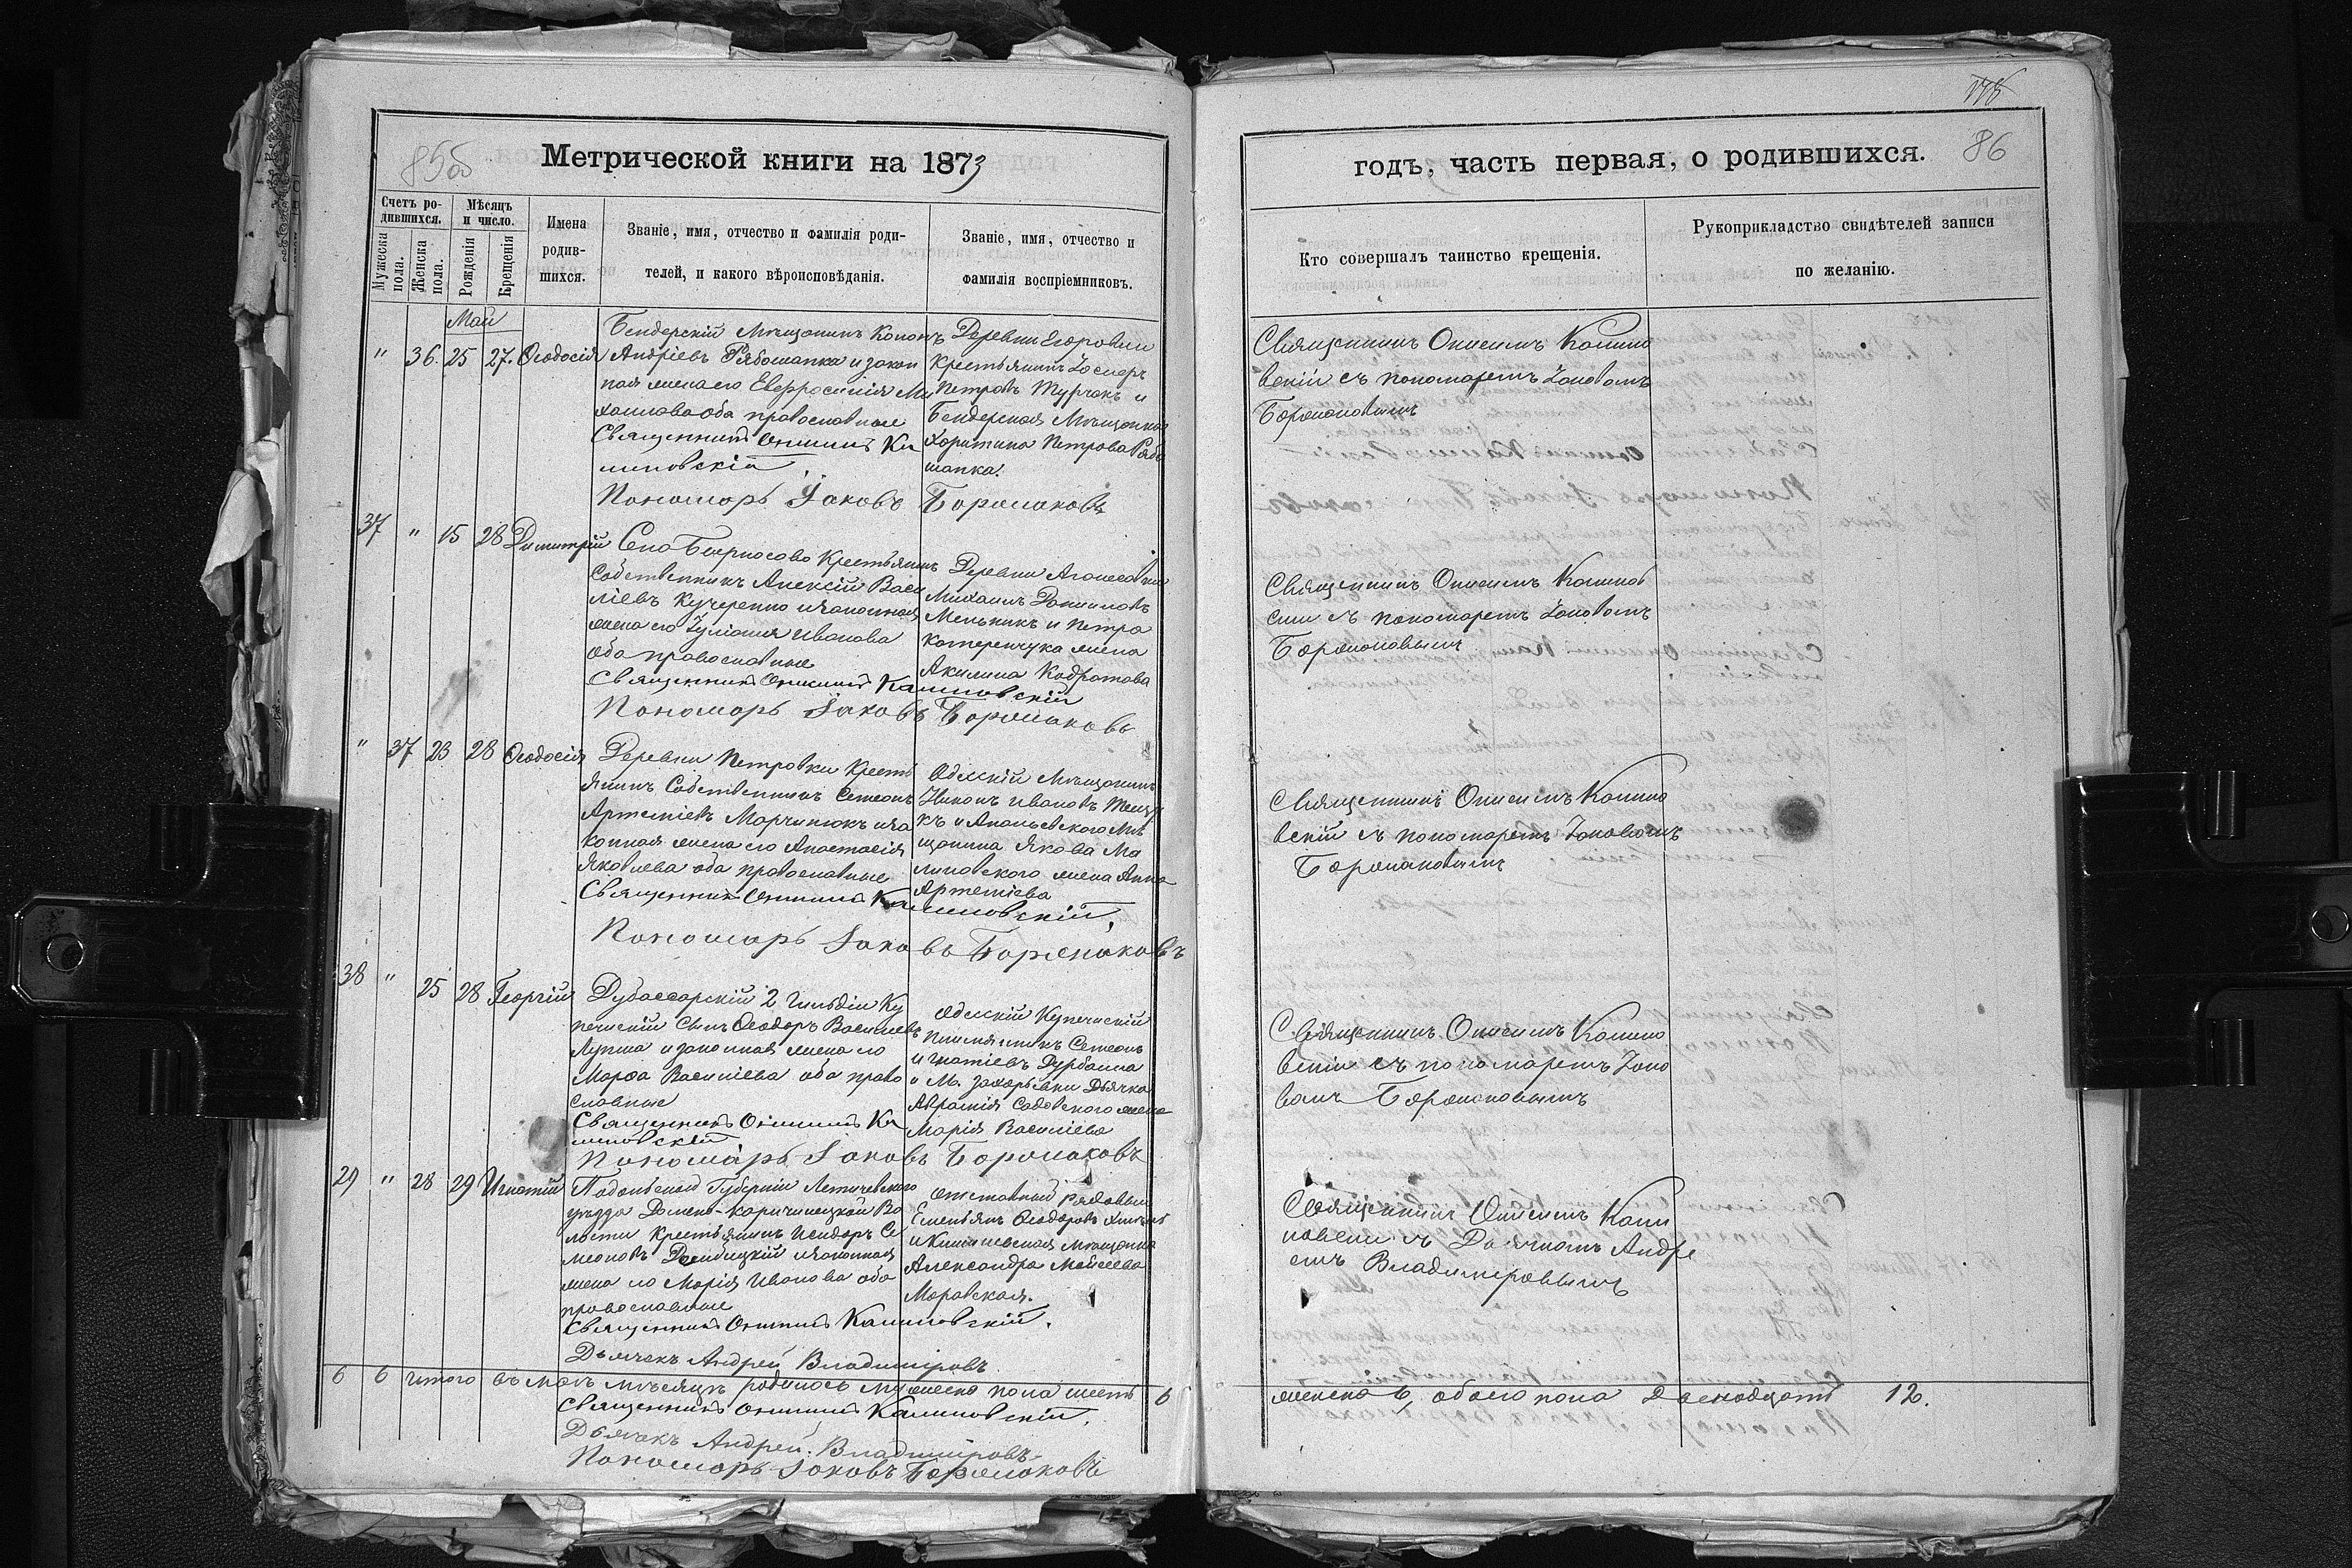 855
Метрической книги на 1873
Счетъ ро-
дившихся.
Мѣсяцъ
и число.
Мужеска
пола.
Женска
пола.
Рожденія
Крещенія
Имена
родив-
шихся.
Званіе, имя, отчество и фамилія роди-
телей, и какого вѣроисповѣданія.
Званіе, имя, отчество и
фамилія воспріемниковъ.
Май
" 36. 25 27. Ѳеодосія
Бендерскій Мѣщанинъ Конон
Андріевъ Рябошапка и закон
ная жена его Евфросинія Ми
хаилова оба православные
Священникъ Онисимъ Ка
линовскій
Деревни Егоровки
Крестьянинъ
Петровъ Турчакъ и
Бендерская Мѣщанка
Харитина Петрова Рябо
шапка.
Пономарь Іаковъ
37 " 15 28 Димитрій
Крестьянинъ
Собственникъ Алексій Васи
ліевъ Кучеренко и законная
жена его Іуліанія Иванова
оба православные
Священникъ Онисимъ Калиновскій
Деревни
Михаилъ
Мельникъ и Петра
жена
Акилина Кодратова
Пономарь Іаковъ
" 37 23 28 Ѳеодосія
Деревни Петровки Кресть
янинъ Собственникъ Семеонъ
Артеміевъ Марчинюкъ и за
конная жена его Анастасія
Яковлева оба православные
Священникъ Онисимъ Калиновскій.
Одесскій Мѣщанинъ
Никонъ Ивановъ
къ и Ананьевского Мѣ
щанина Якова Ма
линовского жена Анна
Артеміева
Пономарь Іаковъ
38 " 25 28 Георгій
Дубоссарскій 2 Гильдіи Ку
печескій Сынъ Ѳеодоръ Василіевъ
Лупша и законная жена его
Марѳа Василіева оба право
славные
Священникъ Онисимъ Ка
линовскій
Одесскій Купеческій
Племянникъ Семеонъ
Игнатіевъ
и М. Захарьевки Дьячка
Садовского жена
Марія Василіева
Пономарь Іаковъ
29 " 28 29 Игнатій
Подольской Губерніи Летичевского
уѣзда Во
лости Крестьянинъ Исидоръ Се
меоновъ и законная
жена его Марія Иванова оба
православные
Священникъ Онисимъ Калиновскій.
Отставный рядовый
Емельянъ Ѳеодоровъ
и Кишиневская мѣщанка
Александра Моисеева
Моравская.
Дьячекъ Андрей Владиміровъ
6 6 Итого въ маѣ мѣсяцѣ родилось мужеска пола шесть 6
Священникъ Онисимъ Калиновскій.
Дьячекъ Андрей Владиміровъ
Пономарь Іаковъ
86
годъ, часть первая, о родившихся.
Кто совершалъ таинство крещенія.
Рукоприкладство свидѣтелей записи
по желанію.
Священникъ Онисимъ Калино
вскій съ пономаремъ Іаковомъ
Священникъ Онисимъ Калинов
скій съ пономаремъ Іаковомъ
Священникъ Онисимъ Калино
вскій съ пономаремъ Іаковомъ
Священникъ Онисимъ Калино
вскій съ пономаремъ Іако
вомъ
Священникъ Онисимъ Кали
новскій съ Дьячкомъ Андре
емъ Владиміровымъ
женска 6, обоего пола двенадцать 12.